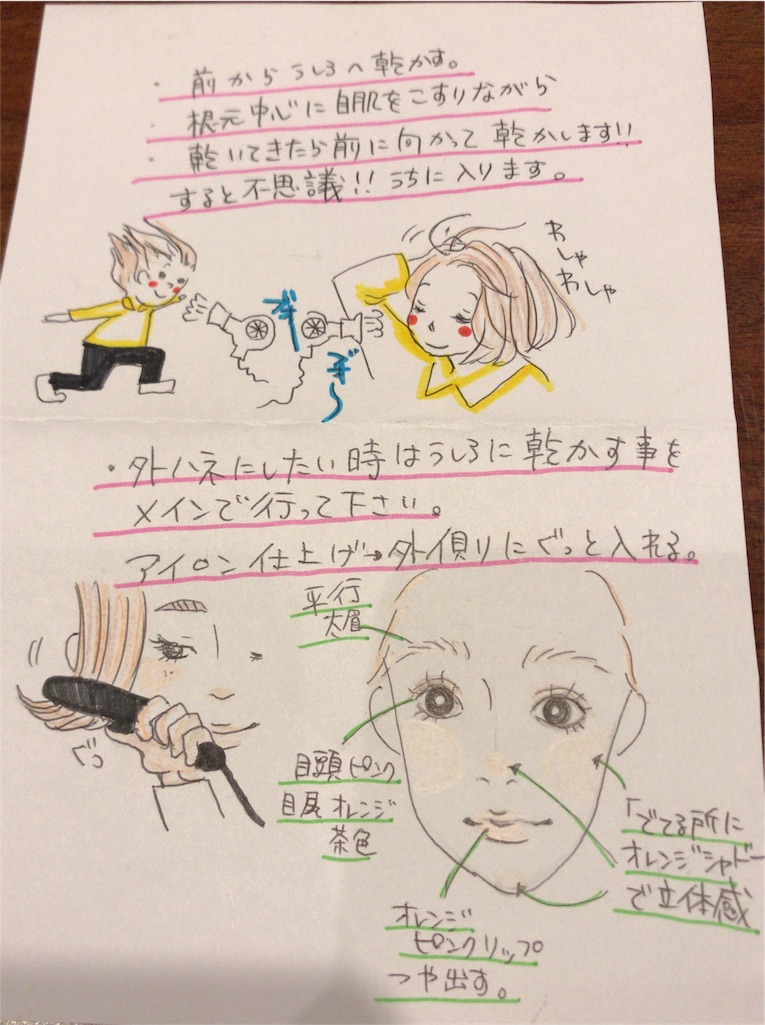 ・前からうしろへ乾かす。
・根元中心に自肌をこすりながら
・乾いてきたら前に向かって乾かします!!
すると不思議!!うちに入ります。
わしゃ
わしゃ
・外ハネにしたい時はうしろに乾かす事を
メインで行って下さい。
アイロン仕上げ→外側りにぐっと入れる。
平行
太眉
ぐっ
目頭ピンク
目尻オレンジ
茶色
「でてる所に
オレンジシャドー
で立体感
オレンジ
ピンクリップ
つや出す。